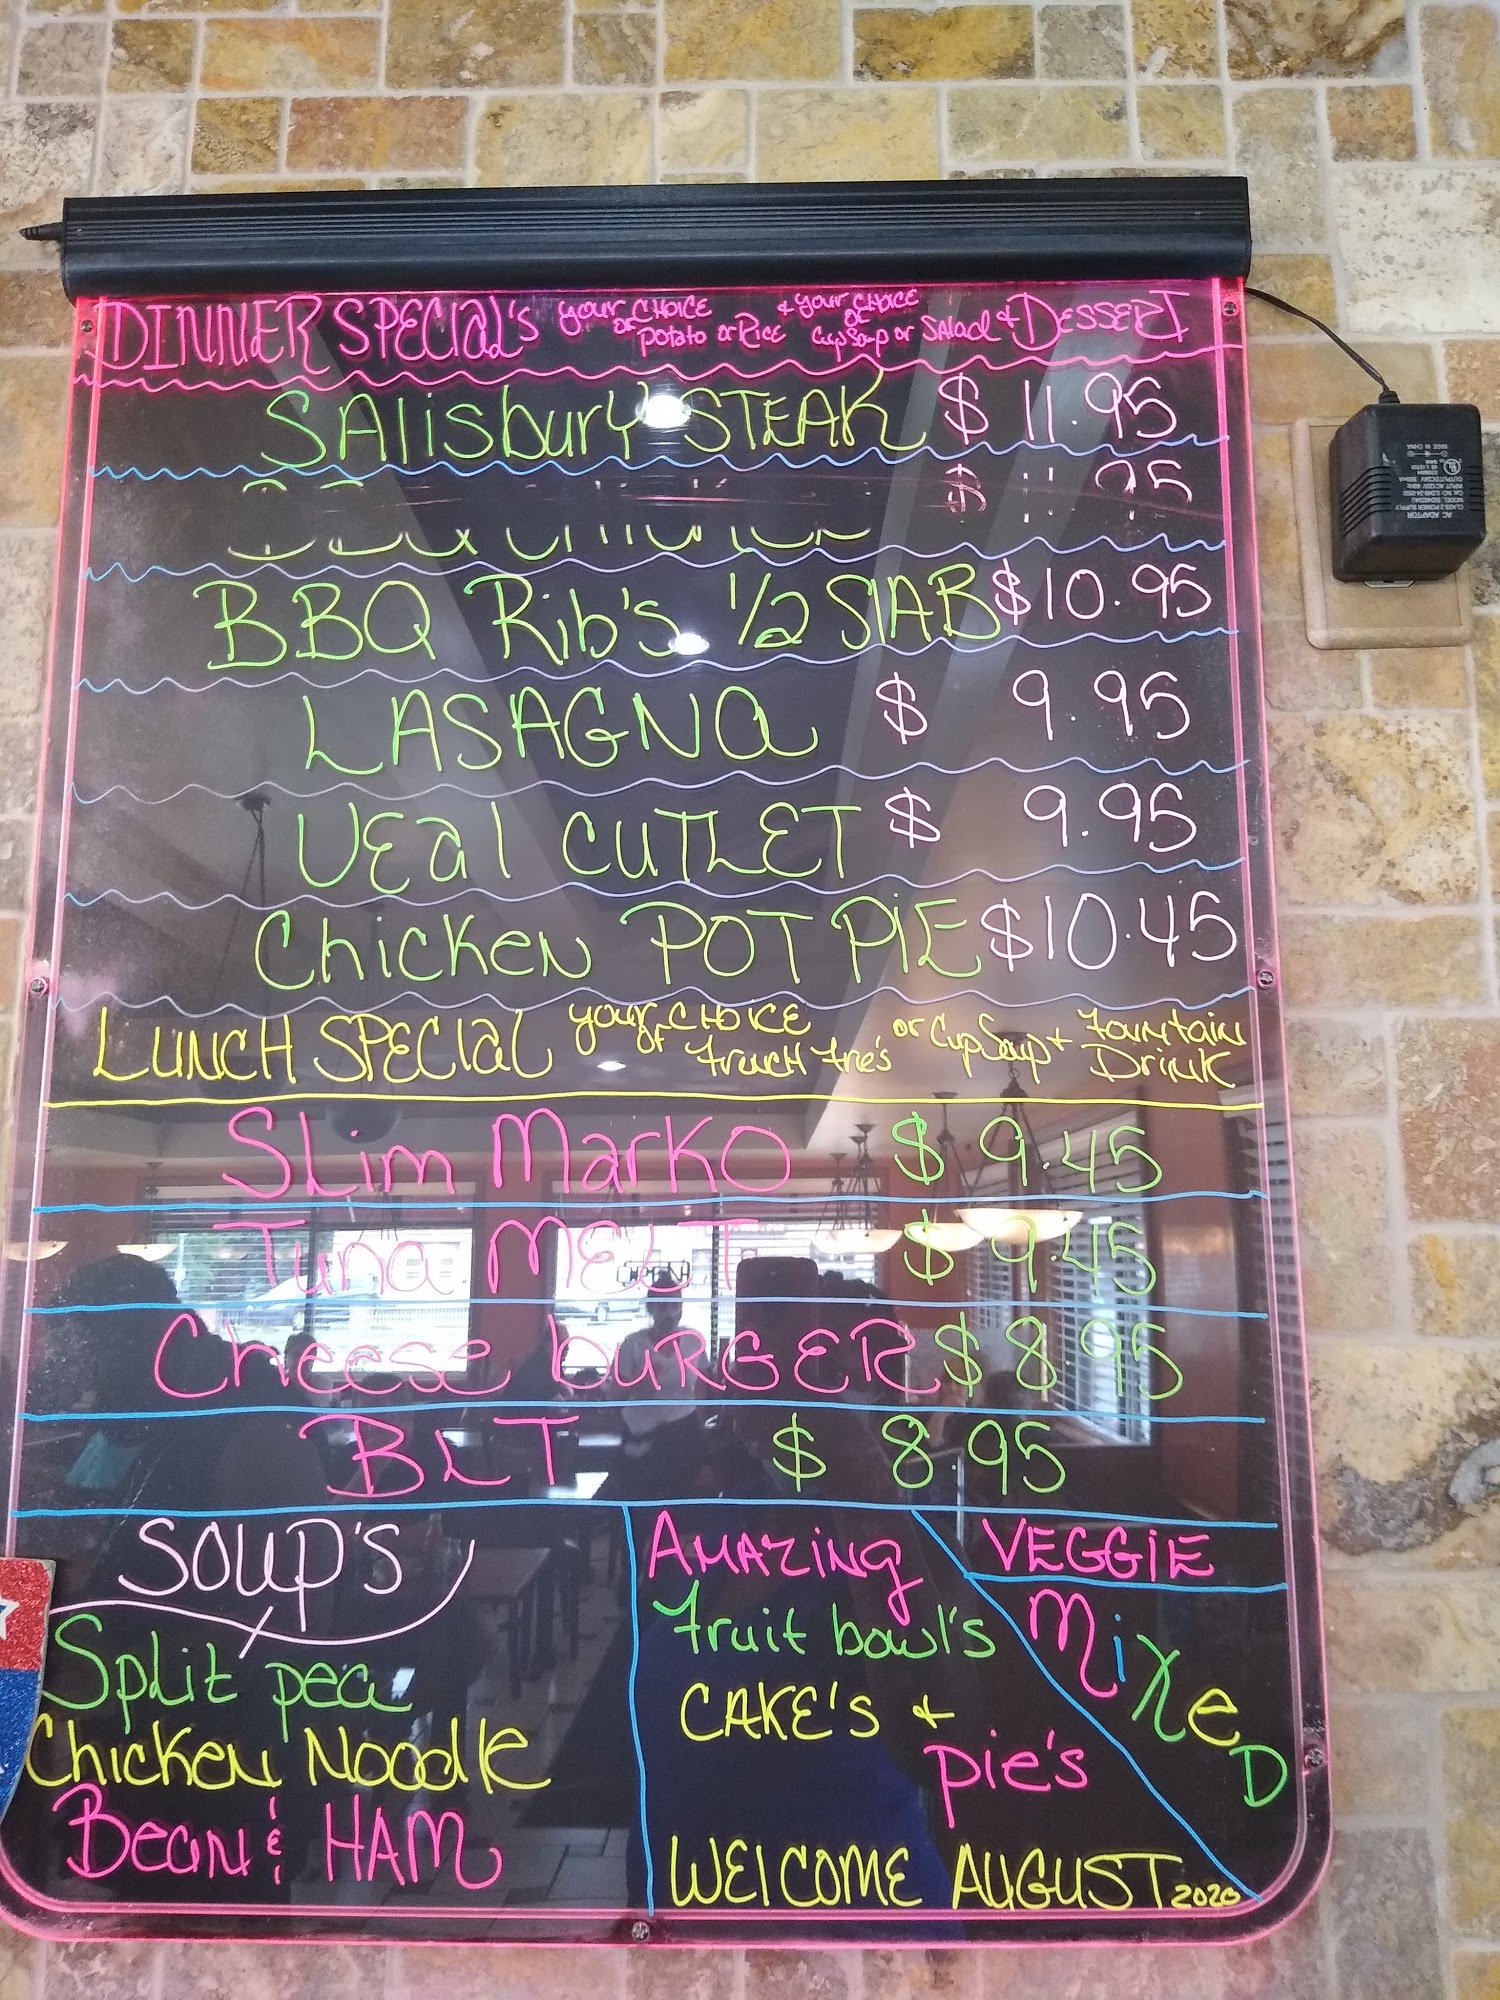 DINNER SPECIAL'S your CHOICE of Potato or Rice + your CHOICE of Cup Soup or Salad + DESSERT
SALISBURY STEAK $ 11.95
$ 11.95
BBQ Rib's 1/2 SLAB $10.95
LASAGNA $ 9.95
VEAL CUTLET $ 9.95
Chicken POT PIE $10.45
LUNCH SPECIAL your CHOICE of French Frie's or Cup Soup + Fountain Drink
SLim MarKO $ 9.45
Tuna MELT $ 9.45
Cheese bURGER $ 8.95
BLT $ 8.95
SOUP'S
Split pea
Chicken Noodle
Bean & HAM
AMAZING
Fruit bowl's
CAKE'S +
pie's
WELCOME AUGUST 2020
VEGGIE
MixeD
AC ADAPTOR
CLASS 2 POWER SUPPLY
MADE IN CHINA